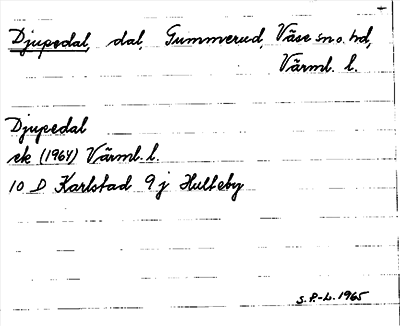 Djupedal, dal, Gummerud, Väse sn o. hd,
Värml. l.
Djupedal
ek (1964) Värml. l.
10 D Karlstad 9 j Hulteby
S.P.-L. 1965